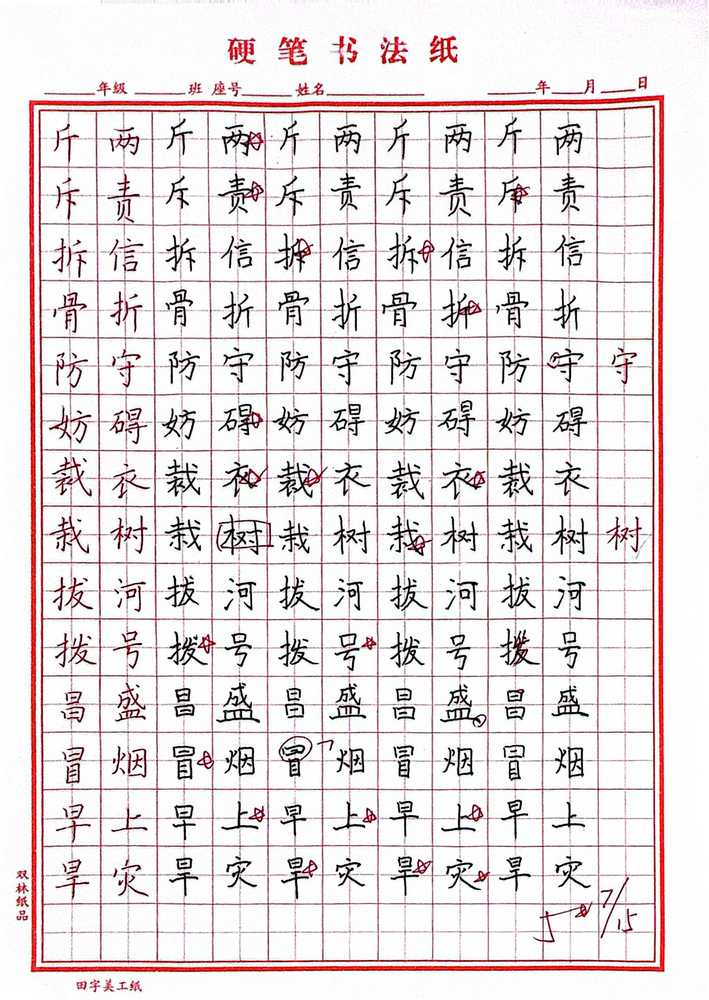 硬笔书法纸
____年级____班 座号____姓名________ ____年___月___日
斤两斤两斤两斤两斤两
斥责斥责斥责斥责斥责
拆信拆信拆信拆信拆信
骨折骨折骨折骨折骨折
防守防守防守防守防守守
妨碍妨碍妨碍妨碍妨碍
裁衣裁衣裁衣裁衣裁衣
栽树栽树栽树栽树栽树树
拔河拔河拔河拔河拔河
拨号拨号拨号拨号拨号
昌盛昌盛昌盛昌盛昌盛
冒烟冒烟冒烟冒烟冒烟
早上早上早上早上早上
旱灾旱灾旱灾旱灾旱灾
7/15
双林纸品
田字美工纸